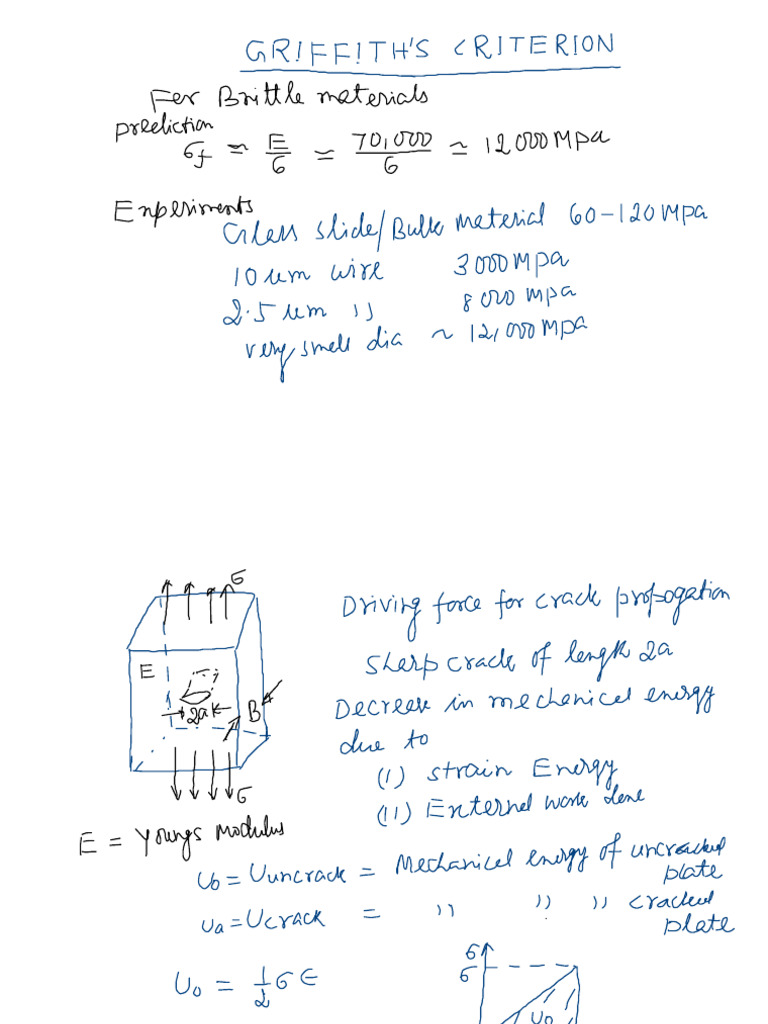 GRIFFITH'S CRITERION
For Brittle materials
prediction
σf ≃ E/6 ≃ 70,000/6 ≃ 12000 MPa
Experiments
Glass slide/Bulk material 60-120 MPa
10 um wire 3000 MPa
2.5 um 11 8000 MPa
very small dia ~ 12,000 MPa
σ
E
2a
B
σ
Driving force for crack propogation
Sharp crack of length 2a
Decrease in mechanical energy
due to
(1) Strain Energy
(11) External work done
E = Youngs modulus
U0 = Uuncrack = Mechanical energy of uncracked
plate
Ua = Ucrack = 11 11 11 cracked
plate
U0 = 1/2 σ ε
σ
σ
U0